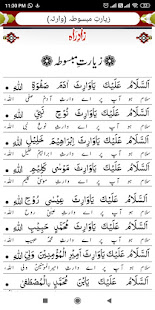 زیارتِ مبسوطہ (وارثہ)
زادِراہ
زیارتِ مبسوطہ
اَلسَّلَامُ عَلَيْكَ يَا وَارِثَ اٰدَمَ صَفْوَةِ اللهِ
سلام ہو آپ پر اے وارث آدم صفی اللہ
اَلسَّلَامُ عَلَيْكَ يَا وَارِثَ نُوْحٍ نَبِيِّ اللهِ
سلام ہو آپ پر اے وارث نوح نبی اللہ
اَلسَّلَامُ عَلَيْكَ يَا وَارِثَ اِبْرَاهِيْمَ خَلِيْلِ اللهِ
سلام ہو آپ پر اے وارث ابراہیم خلیل اللہ
اَلسَّلَامُ عَلَيْكَ يَا وَارِثَ مُوْسٰى كَلِيْمِ اللهِ
سلام ہو آپ پر اے وارث موسیٰ کلیم اللہ
اَلسَّلَامُ عَلَيْكَ يَا وَارِثَ عِيْسٰى رُوْحِ اللهِ
سلام ہو آپ پر اے وارث عیسیٰ روح اللہ
اَلسَّلَامُ عَلَيْكَ يَا وَارِثَ مُحَمَّدٍ حَبِيْبِ اللهِ
سلام ہو آپ پر اے وارث محمد حبیب اللہ
اَلسَّلَامُ عَلَيْكَ يَا وَارِثَ اَمِيْرِ الْمُؤْمِنِيْنَ وَلِيِّ اللهِ
سلام ہو آپ پر اے وارث امیرالمومنین ولی اللہ
اَلسَّلَامُ عَلَيْكَ يَابْنَ مُحَمَّدٍ الْمُصْطَفٰى